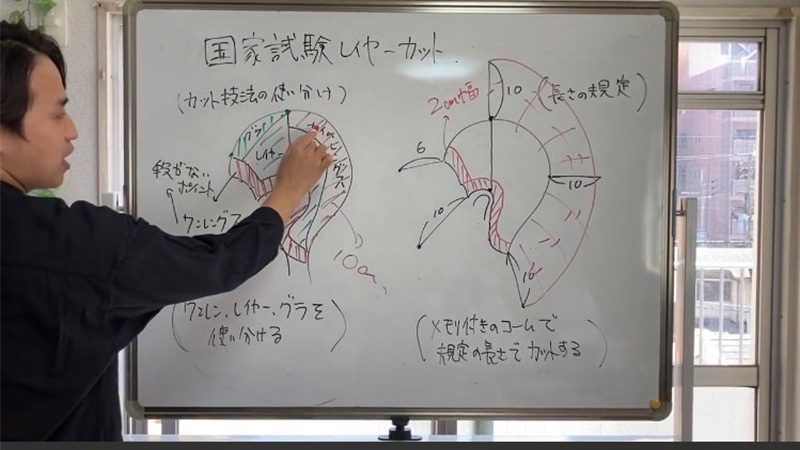 国家試験レイヤーカット
(カット技法の使い分け)
グラ
レイヤー
段がない
ポイント
ワンレングス
10cm
(ワンレン、レイヤー、グラを
使い分ける)
2cm幅
10
(長さの規定)
6
10
10
10
(メモリ付きのコームで
規定の長さでカットする)